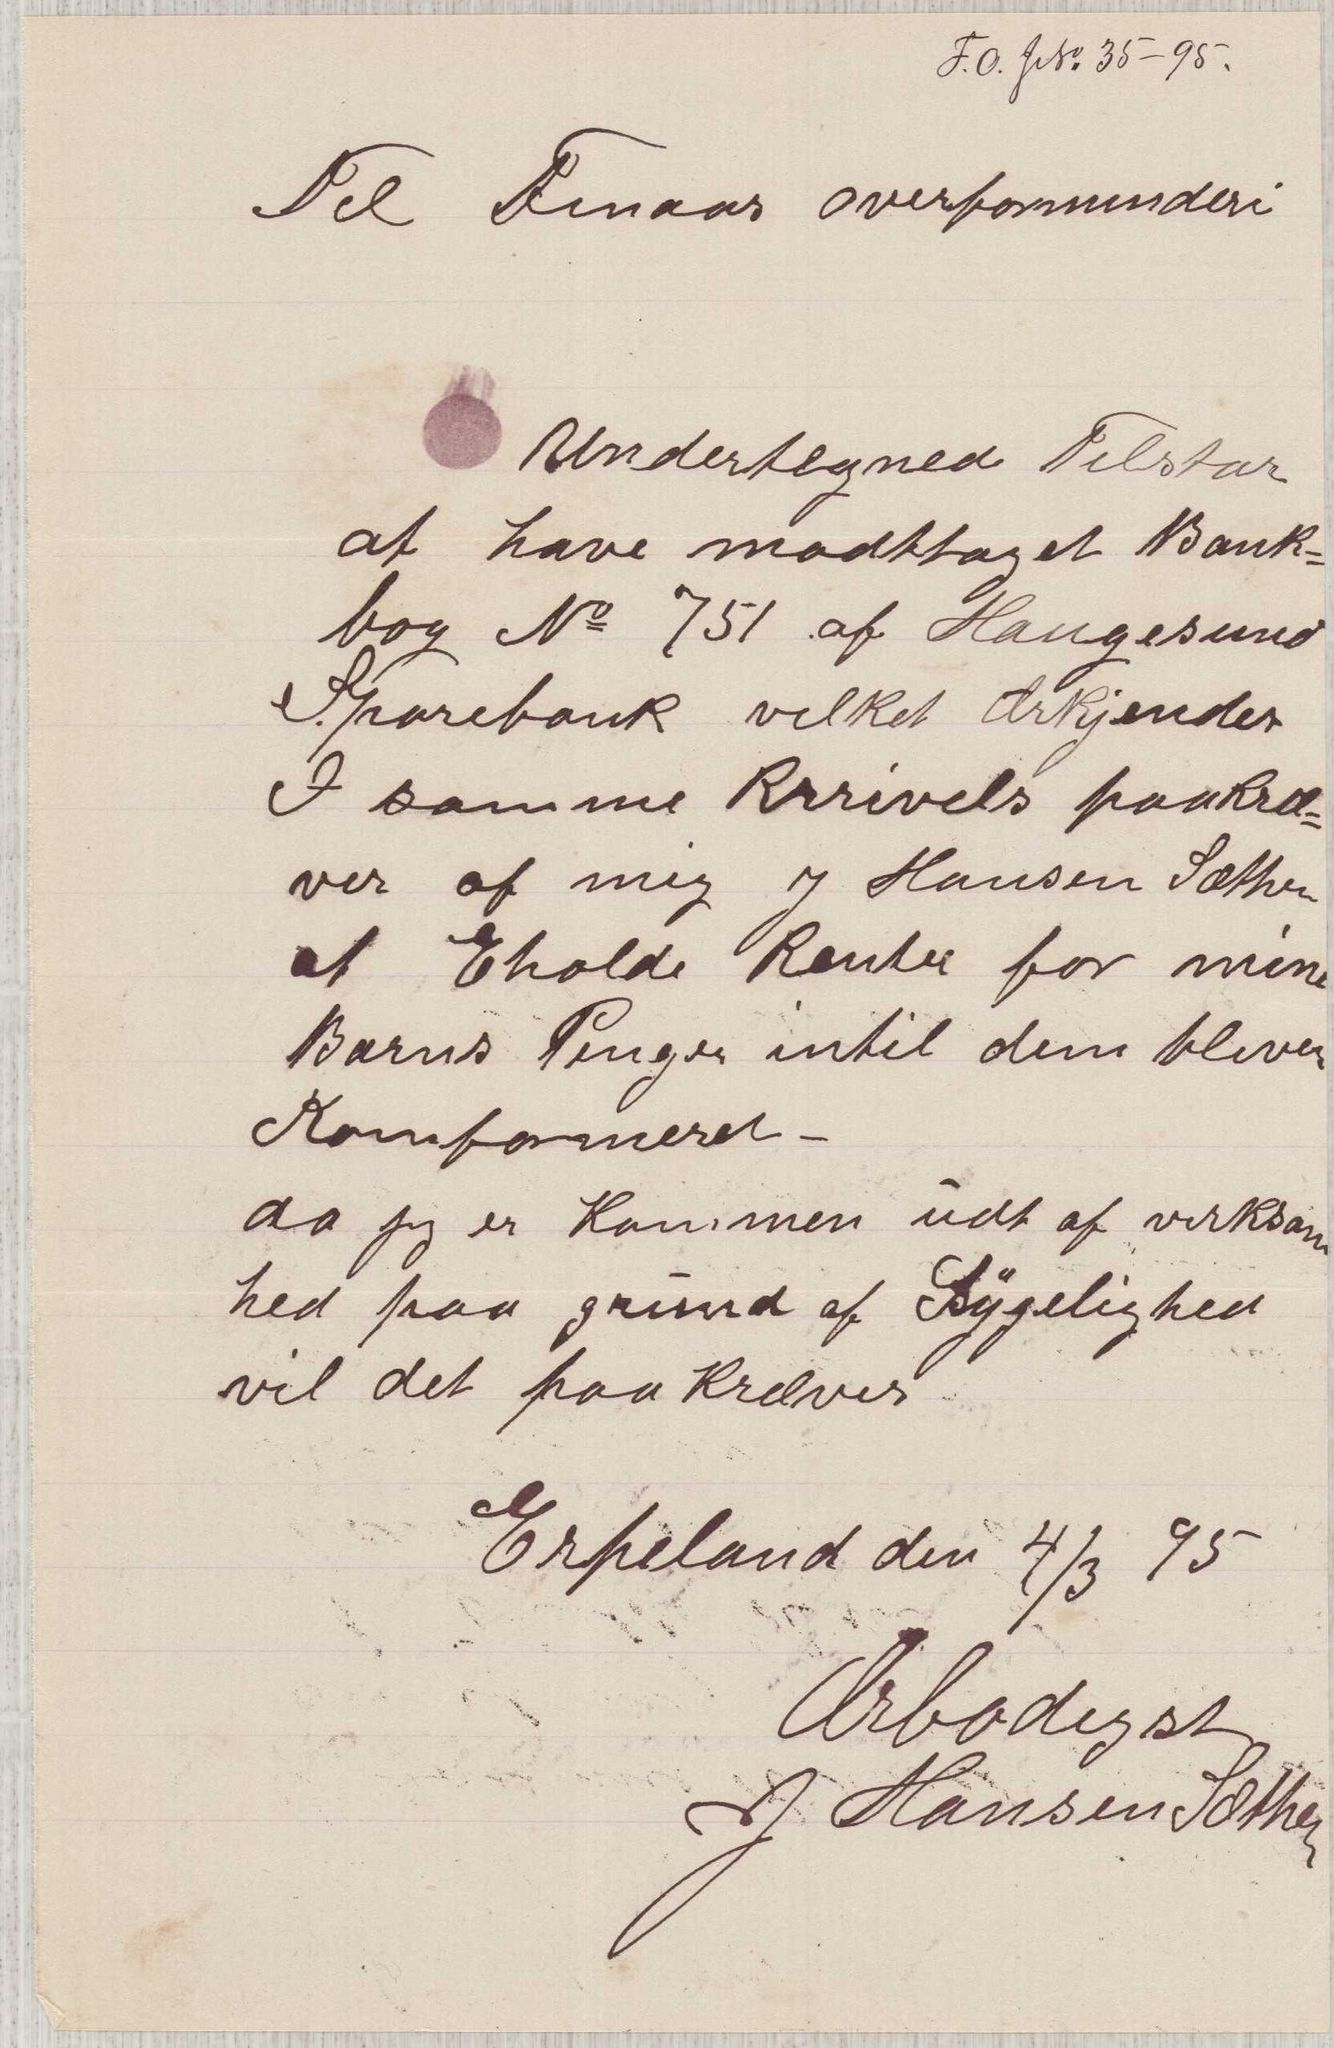 F.O. JNo. 35-95.
Til Finaas overformunderi
Undertegned Tilstar
at have modttaget Bank=
bog No 751 af Haugesund
Sparebank vilket Ærkjendes
I samme Krrivels paakræ=
ver af mig J Hansen Sæther
at Eholde Renter for mine
Barns Penger intil dem bliver
Komformeret -
da jeg er Kommen udt af virksom
hed paa grund af Sygelighed
vil det paa Kræves
Erpeland den 4/3 95
Ærbødigst
J Hansen Sæther